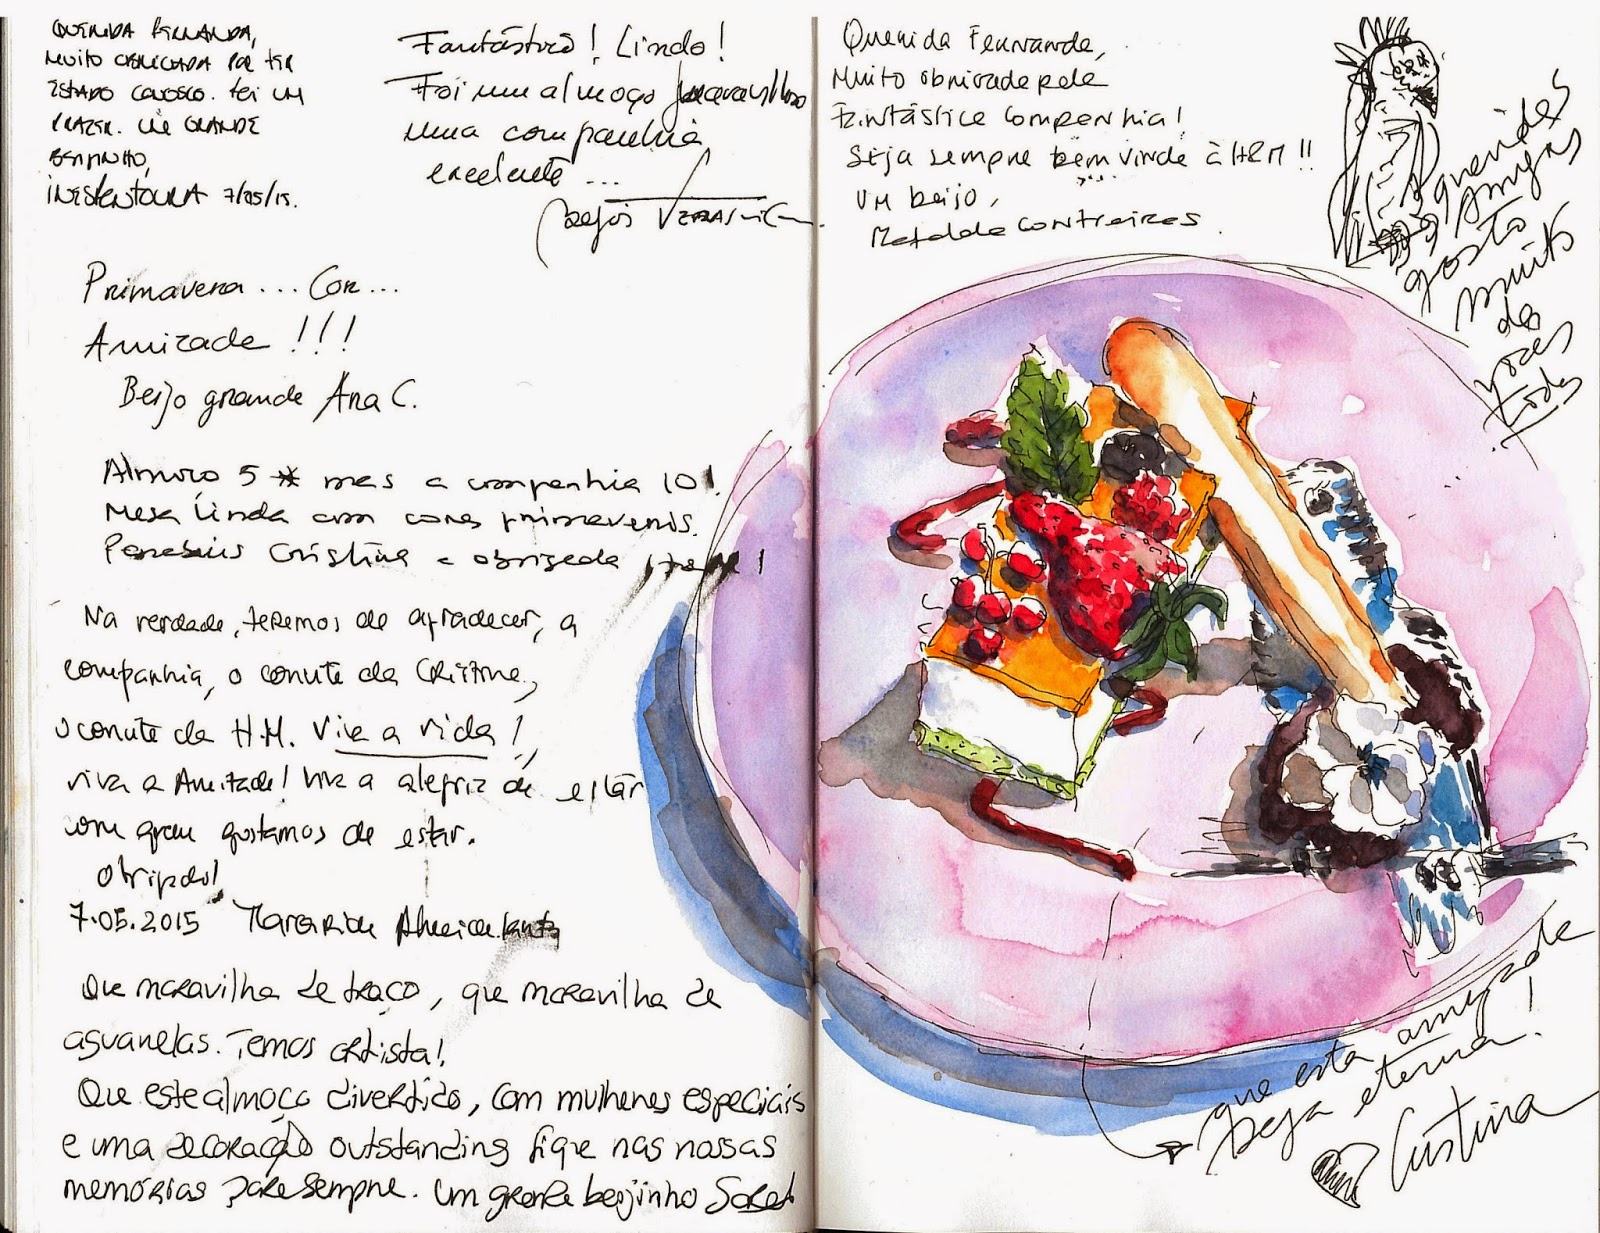 QUERIDA FERNANDA,
MUITO OBRIGADA POR TER
ESTADO CONOSCO. FOI UM
PRAZER. UM GRANDE
BEIJINHO,
7/05/15.
Fantástico! Lindo!
Foi um almoço maravilhoso
uma companhia
excelente...
Beijos
Primavera... Cor...
Amizade!!!
Beijo grande Ana C.
Almoço 5 * mas a companhia 10!
Mesa linda com cores primaveris.
Parabéns Cristina e obrigada
Na verdade, teremos de agradecer, a
companhia, o convite da Cristina,
o convite da H.M. Viva a vida!,
viva a Amizade! Viva a alegria de estar
com quem gostamos de estar.
Obrigado!
7.05.2015 Margarida Almeida
Que maravilha de traço, que maravilha de
aguarelas. Temos artista!
Que este almoço divertido, com mulheres especiais
e uma decoração outstanding fique nas nossas
memórias para sempre. Um grande beijinho
Querida Fernanda,
Muito obrigada pela
Fantástica companhia!
Seja sempre bem vinda à HRM!!
Um beijo,
Mafalda Contreiras.
queridas
Amigas
gosto
muito
de
vocês
todas
que esta amizade
seja eterna!
Cristina